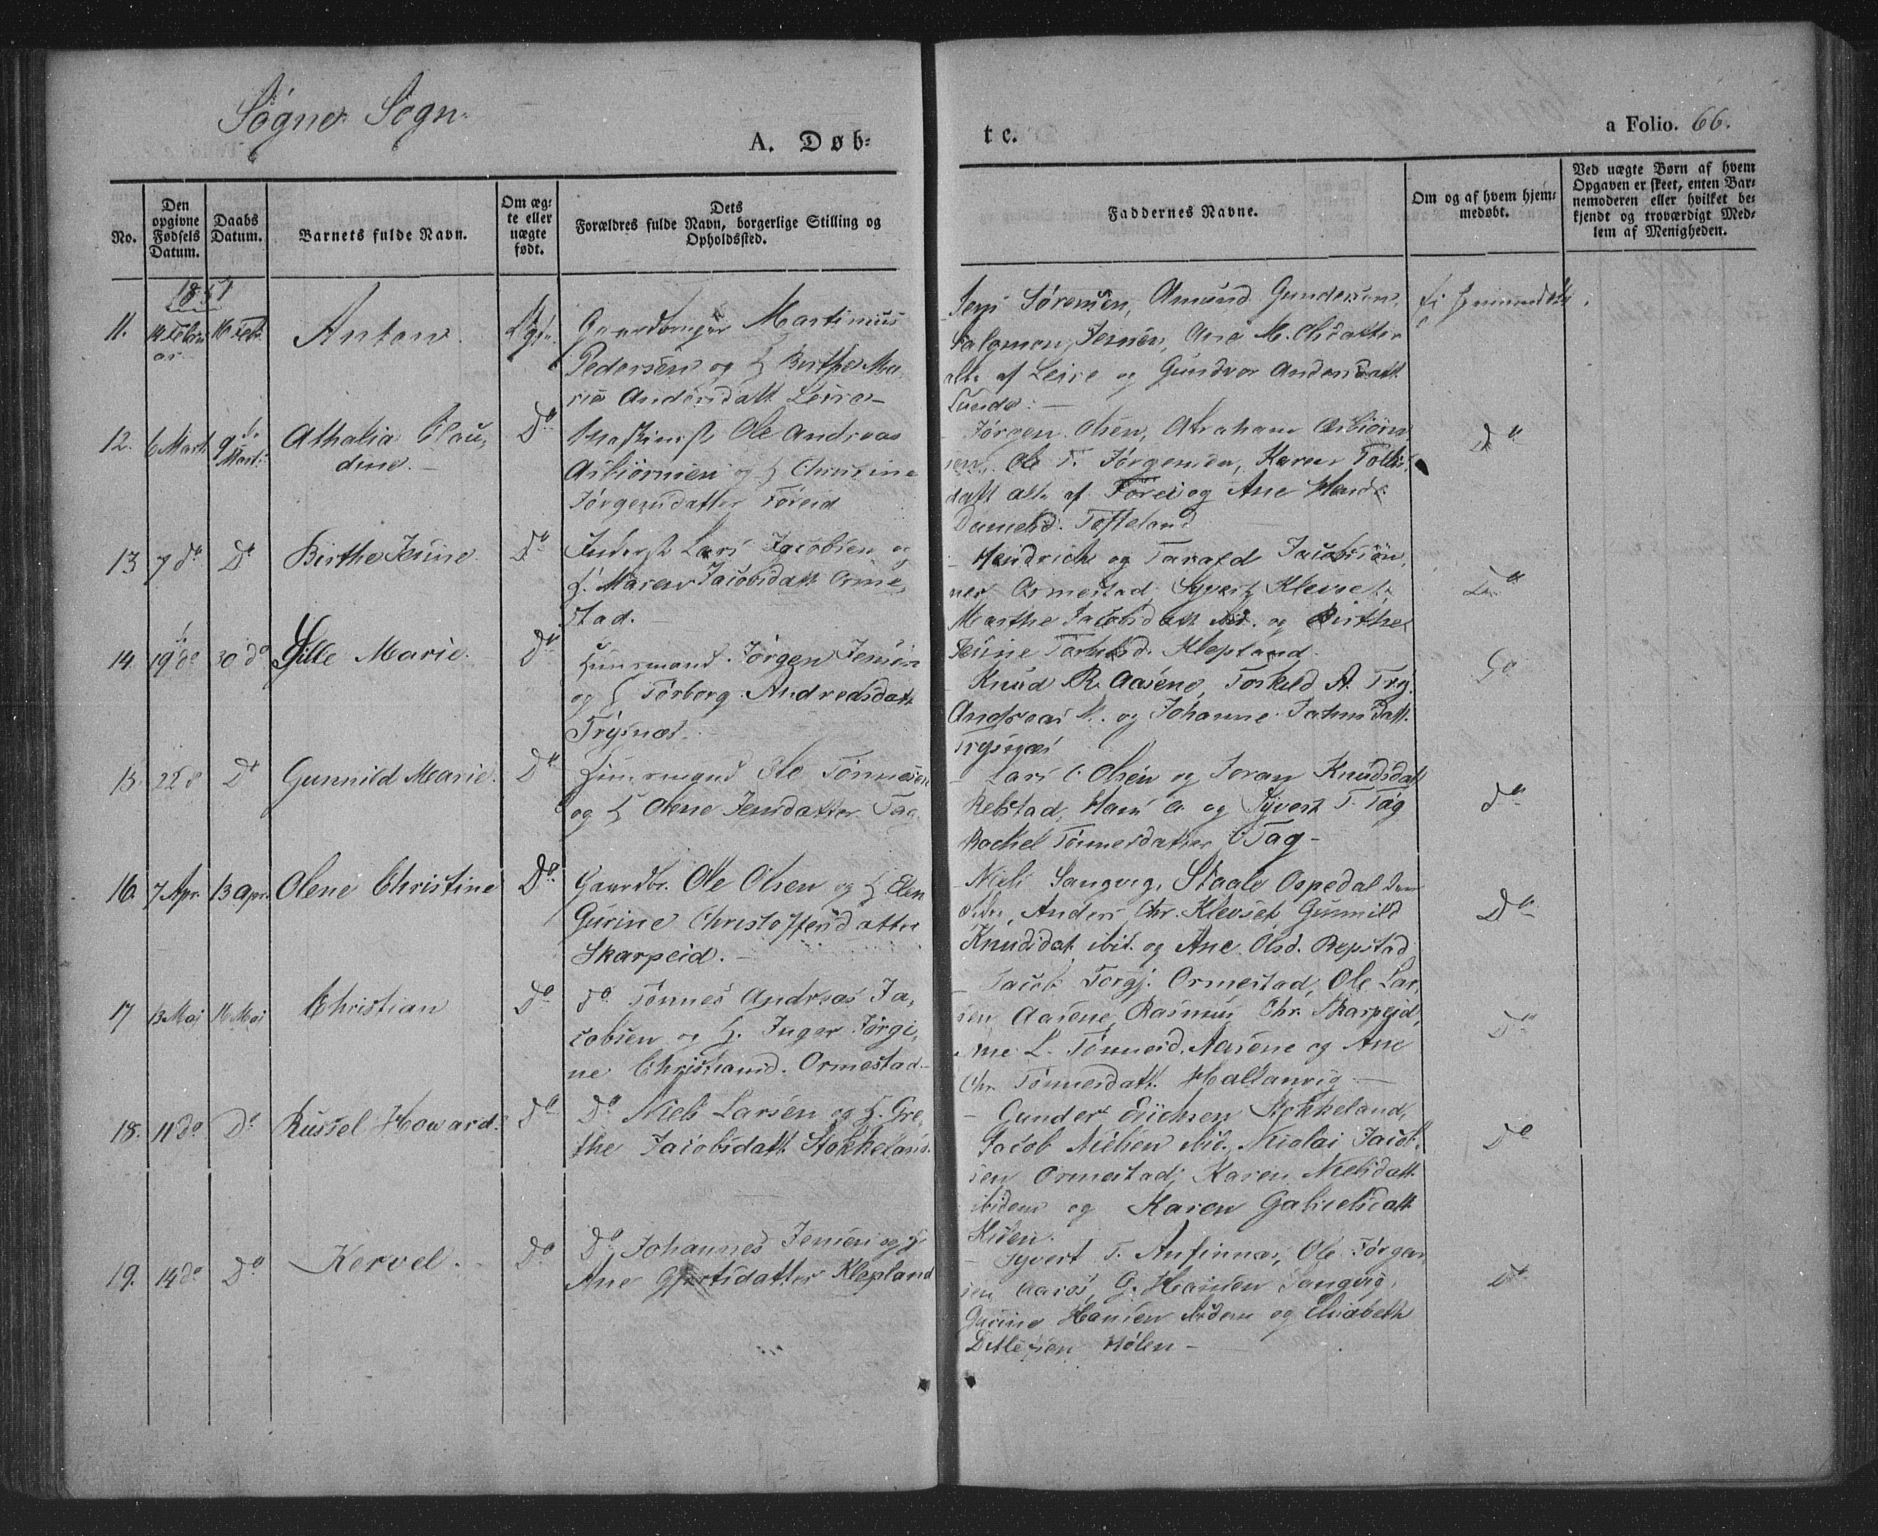 Søgne Sogn.
A. Døb-
te.
a Folio. 66.
No.
Den opgivne Fødsels Datum.
Daabs Datum.
Barnets fulde Navn.
Om ægte eller uægte født.
Dets Forældres fulde Navn, borgerlige Stilling og Opholdssted.
Faddernes Navne.
Om og af hvem hjemmedøbt.
Ved uægte Børn af hvem
Opgaven er skeet, enten Bar-
nemoderen eller hvilket be-
kjendt og troværdigt Med-
lem af Menigheden.
1851
11.
Anton.
Gaardbruger Martinius
Pedersen og H Birthe Ma-
rie Andersdatt Leire
Sørensen, Amund Gundersen,
Salomon Jensen, Ane M. Olsdatter
alle af Leire og Gundvor Andersdatt
Lunde.
12. 6 Marts 9de Marts
Athalia Clau-
dine.
Do
Ole Andreas
Asbiørnsen og H Christine
Jørgensdatter Føreid
Jørgen Olsen, Abraham Asbiørn-
sen, Ole T. Jørgensen, Karen
datt alle af og Ane
Danield. Tofteland
Do
13 7 do Do
Birthe Jenine
Do
Inderst Lars Jacobsen og
H. Maren Jacobsdatt Orme-
stad.
Hendrich og Tarald Jacobsøn-
ner Ormestad, Syvert Klevset,
Marthe Jacobsdatt ibd. og Birthe
Jenine Klepland
Do
14. 19 do 30 do
Sille Marie.
Do
Huusmand Jørgen Jensen
og H Torborg Andreasdatt
Trysnæs.
Knud R. Aasene, Torkild A. Try.
Andreas M. og Johanne
Trysnæs
Do
15. Do
Gunnild Marie.
Do
Huusmand Ole Tønnesen
og H Olene Jensdatter Tag
Lars Olsen og Knudsdatt
Repstad, Hans O. og Syvert T. Tag
Rachel Tønnesdatter Tag
Do
16. 7 Apr. 13 Apr.
Olene Christine
Do.
Gaardbr. Ole Olsen og H Elen
Gurine Christoffersdatter
Skarpeid.
Niels Langvig, Staale Ospedal
Anders Chr. Klevset Gunnild
Knudsdat ibid. og Ane Olsd. Repstad
Do
17 13 Maj 18 Maj
Christian
Do
do Tønnes Andreas Ja-
cobsen og H. Inger Jørgi-
ne Christiansd. Ormestad
Jacob Torgj. Ormestad, Ole Lar-
sen Aasene, Rasmus Chr. Skarpeid,
Ane L. Tønnesd. Aasene og Ane
Chr. Tønnesdatt. Hallanvig
Do
18. 11 do Do
Russel Howard.
Do
Do Niels Larsen og H. Gre-
the Jacobsdatt Stokkeland.
Gunder Stokkeland,
Jacob Nielsen ibid. Nicolai Jacob-
sen Ormestad, Karen Nielsdatt
ibidem og Karen Gabrielsdatt
Do
19. 14 do Do
Kervel.
Do
Do Johannes Jensen og H
Ane Gjertsdatter Klepland
Syvert T. Anfinnæs, Ole Jørgen-
sen Aaros, G. Hansen Langvig,
Gurine Hansen ibidem og Elisabeth
Ditlevsen Hølen
Do